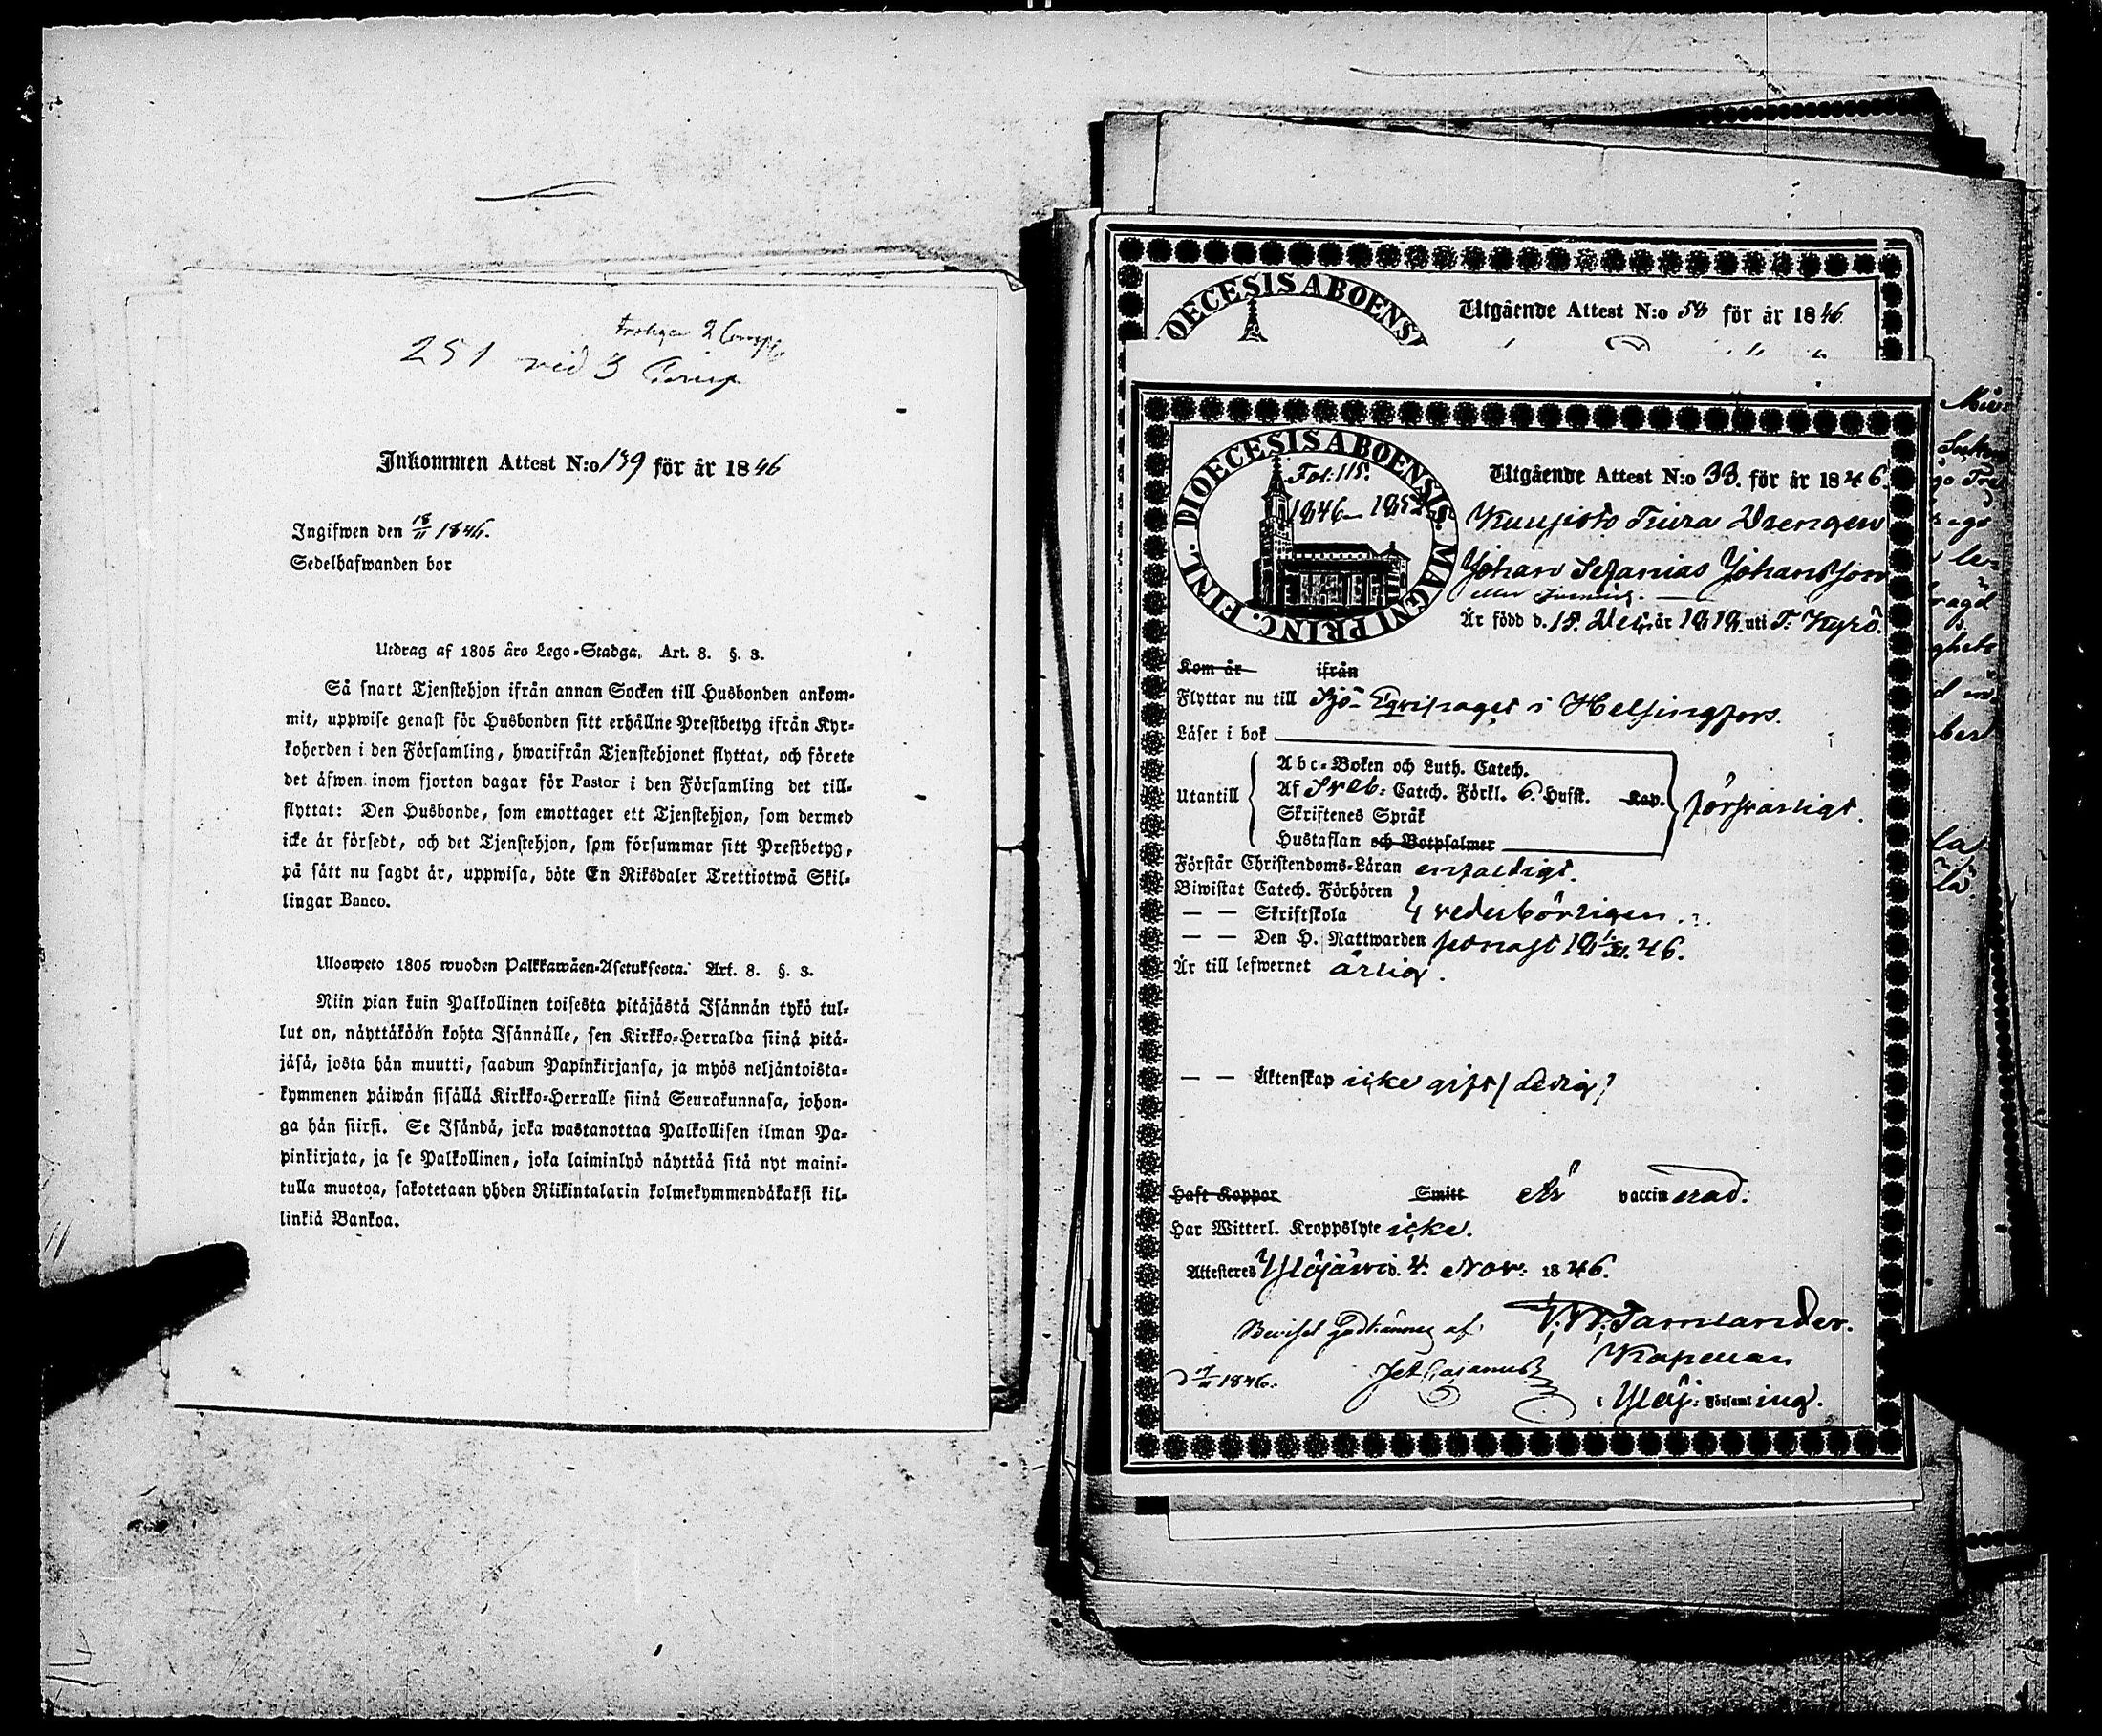 251 vid 3 Comp
Inkommen Attest N:o 139 för år 1846
Ingifwen den 18/11 1846.
Sedelhafwanden bor
Utdrag af 1805 års Lego-Stadga. Art. 8. §. 3.
Så snart Tjenstehjon ifrån annan Socken till Husbonden ankom-
mit, uppwise genast för Husbonden sitt erhållne Prestbetyg ifrån Kyr-
koherden i den Församling, hwarifrån Tjenstehjonet flyttat, och förete
det äfwen inom fjorton dagar för Pastor i den Församling det till-
flyttat: Den Husbonde, som emottager ett Tjenstehjon, som dermed
icke är försedt, och det Tjenstehjon, som försummar sitt Prestbetyg,
på sätt nu sagdt är, uppwisa, böte En Riksdaler Trettiotwå Skil-
lingar Banco.
Ulosweto 1805 wuoden Palkkawäen-Asetuksesta. Art. 8. §. 3.
Niin pian kuin Palkollinen toisesta pitäjästä Isännän tykö tul-
lut on, näyttäköön kohta Isännälle, sen Kirkko-Herralda siinä pitä-
jäsä, josta hän muutti, saadun Papinkirjansa, ja myös neljäntoista-
kymmenen päiwän sisällä Kirkko-Herralle siinä Seurakunnasa, johon-
ga hän siirsi. Se Isändä, joka wastanottaa Palkollisen ilman Pa-
pinkirjata, ja se Palkollinen, joka laiminlyö näyttää sitä nyt maini-
tulla muotoa, sakotetaan yhden Riikintalarin kolmekymmendäkaksi kil-
linkiä Bankoa.
OECESIS ABOENS
Utgående Attest N:o 58 för år 1846
DIOECESIS ABOENSIS. MAGNI PRINC. FINL.
Fol. 115.
1846–1852
Utgående Attest N:o 33. för år 1846.
Kuusisto Tiura Drengen
Johan Sefanias Johansson
eller
Är född d. 15. Dec. år 1819. uti T. Kyrö.
Kom år ifrån
Flyttar nu till Sjö-Eqvipaget i Helsingfors.
Läser i bok
Utantill
Abc-Boken och Luth. Catech.
Af Sveb: Catech. Förkl. 6. Hufst. Kap.
Skriftenes Språk
Hustaflan och Botpsalmer
försvarligt.
Förstår Christendoms-Läran enfaldigt.
Biwistat Catech. Förhören
— — Skriftskola vederbörligen.
— — Den H. Nattwarden senast
Är till lefwernet ärlig.
— — Äktenskap icke gift / Ledig /
Haft Koppor Smitt Är vaccinerad.
Har Witterl. Kroppslyte icke.
Attesteres Ylöjärvi d. 4. Nov: 1846.
Beviset godkännes af
V. W. Tamlander.
Kapellan
i Ylöj: Församling.
1846.